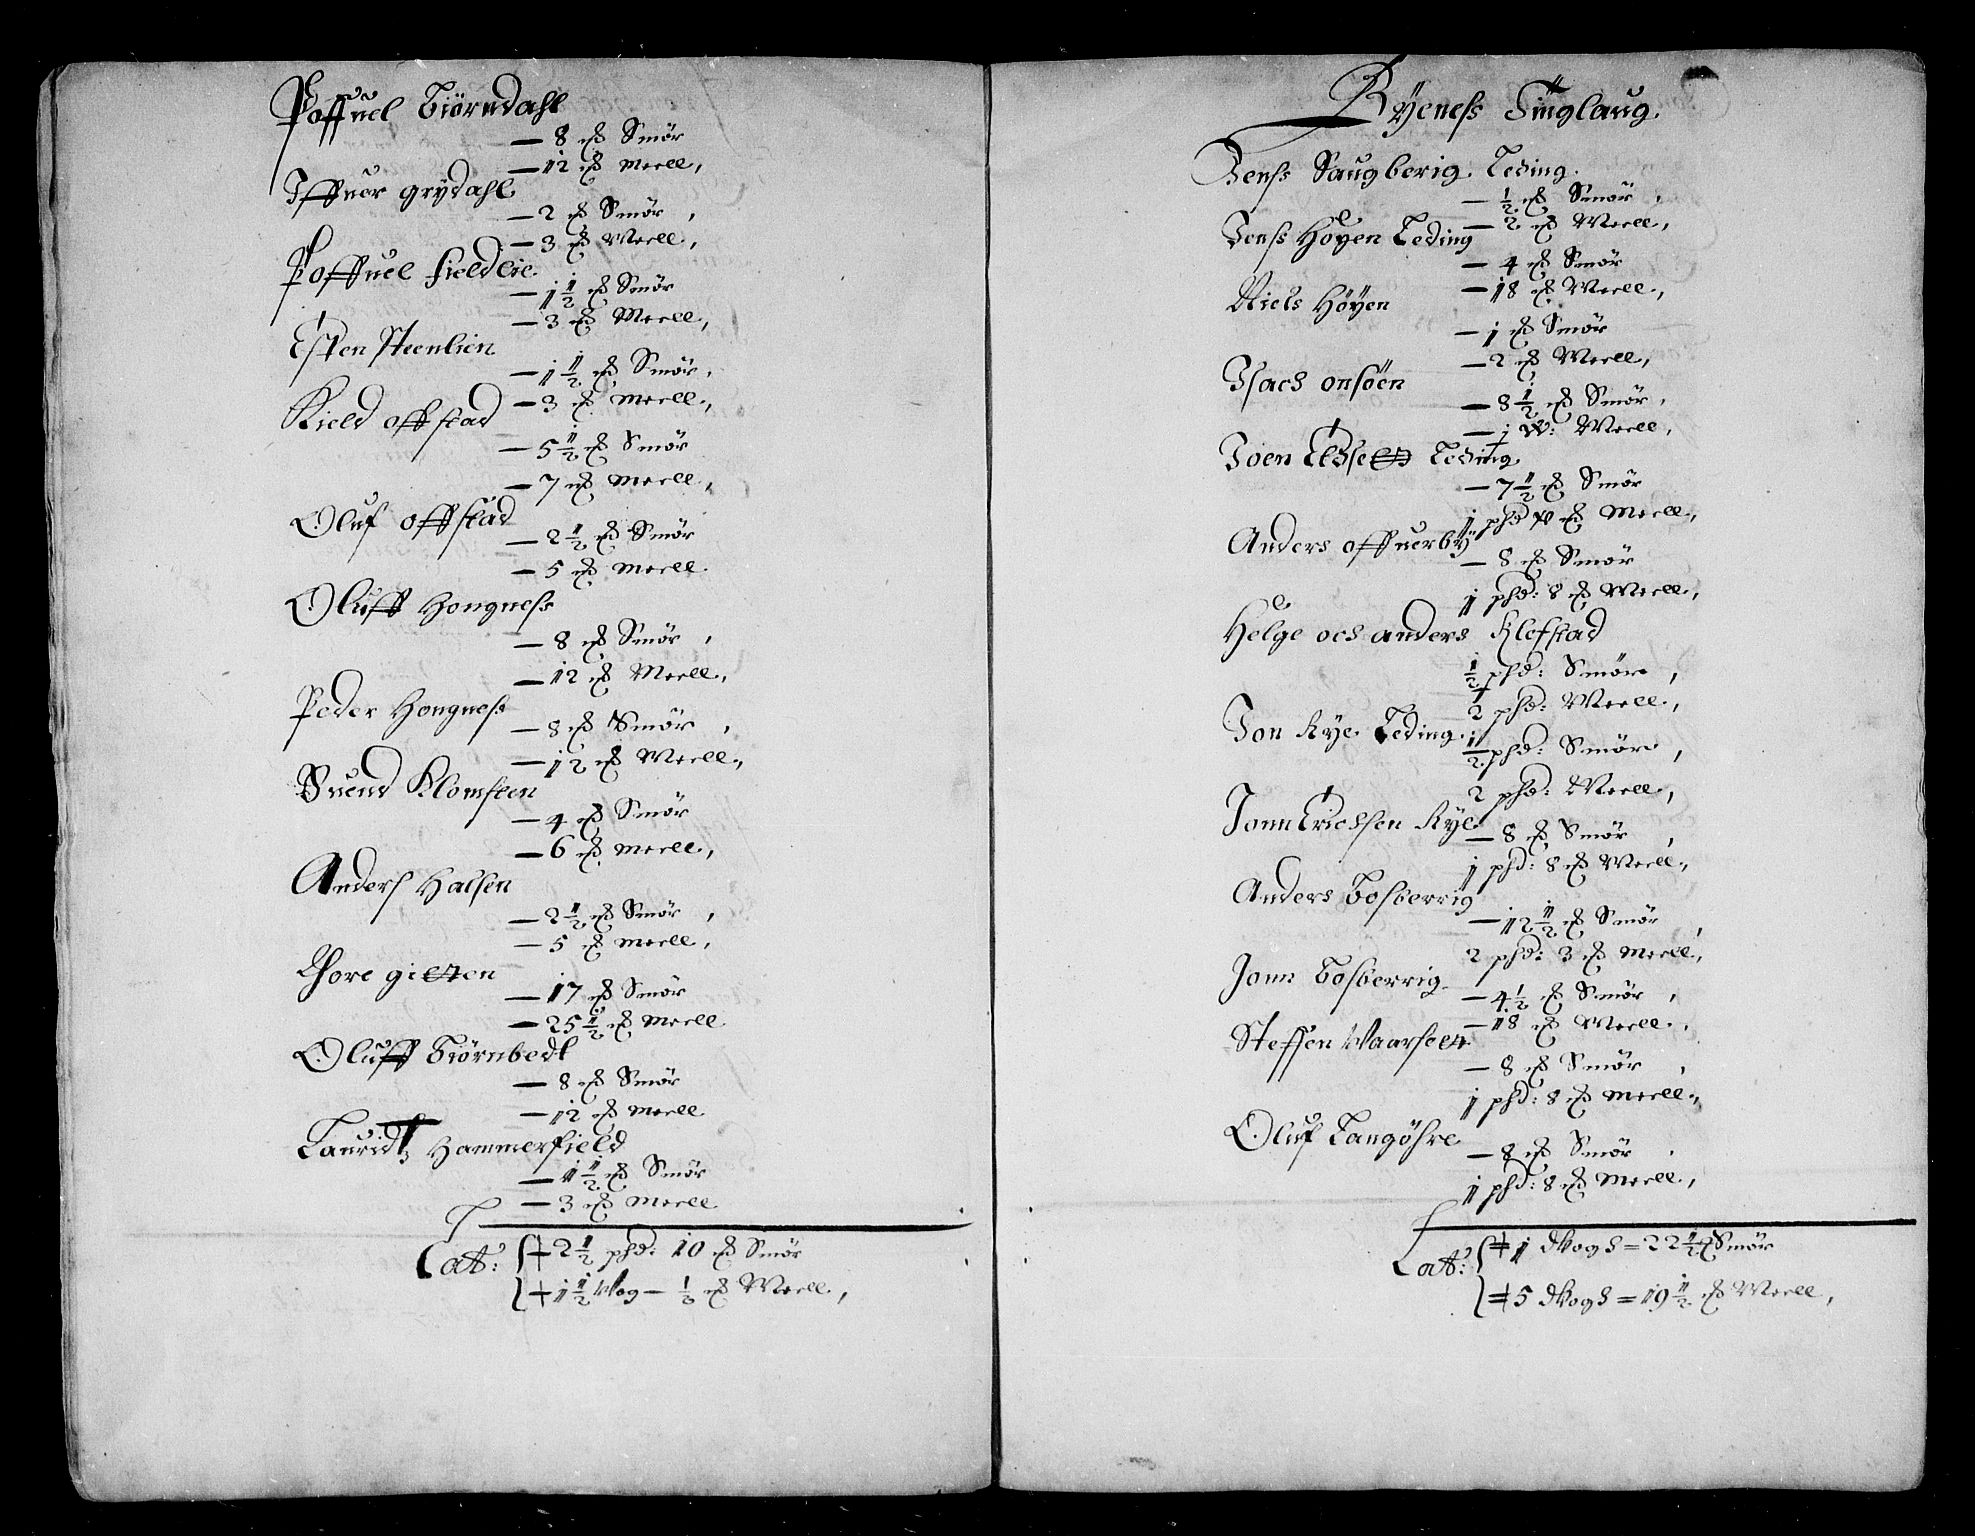 Poffuel Biörndahl
— 8 ℔ Smör
— 12 ℔ Meell,
Iffuer grydahl
— 2 ℔ Smör,
— 3 ℔ Meell,
Poffuel Fieldlie
— 1½ ℔ Smör
— 3 ℔ Meell,
Esten Steenlien
— 1½ ℔ Smör,
— 3 ℔ Meell,
Kield offstad
— 5½ ℔ Smör
— 7 ℔ Meell,
Oluf offstad
— 2½ ℔ Smör
— 5 ℔ Meell
Oluff Hongness
— 8 ℔ Smör,
— 12 ℔ Meell,
Peder Hongness
— 8 ℔ Smör,
— 12 ℔ Meell,
Suend Klomsten
— 4 ℔ Smör
— 6 ℔ Meell,
Anders Halsen
— 2½ ℔ Smör,
— 5 ℔ Meell,
Thore
— 17 ℔ Smör
— 25½ ℔ Meell
Oluff Biörnbedt
— 8 ℔ Smör
— 12 ℔ Meell
Lauridtz Hammerfield
— 1½ ℔ Smör
— 3 ℔ Meell
Lat: + 2½ phd: 10 ℔ Smör
+ 1½ Wog — ½ ℔ Meell,
Ryeness Tinglaug.
Jenss Saugberig. Leding.
— ½ ℔ Smör,
— 2 ℔ Meell,
Jenss Höyen Leding
— 4 ℔ Smör
— 18 ℔ Meell,
Niels Höyen
— 1 ℔ Smör
— 2 ℔ Meell,
Isach onsöen
— 8½ ℔ Smör,
— 1 W: Meell,
Joen Leding
— 7½ ℔ Smör
1 phd ℔ Meell,
Anders offuerby
— 8 ℔ Smör
1 phd: 8 ℔ Meell,
Helge och anders Klefstad
½ phd: Smör,
2 phd: Meell,
Jon Rye Leding:
½ phd: Smör,
2 phd: Meell,
Jonn Erichsen Rye
— 8 ℔ Smör,
1 phd: 8 ℔ Meell,
Anders Bosberrig
— 12½ ℔ Smör,
2 phd: 3 ℔ Meell,
Jonn Bosberrig
— 4½ ℔ Smör,
— 18 ℔ Meell,
Steffen Waarseet
— 8 ℔ Smör,
1 phd: 8 ℔ Meell,
Oluf Langöhre
— 8 ℔ Smör,
1 phd: 8 ℔ Meell,
Lat: + 1 dWogh = 22½ ℔ Smör
+ 5 dWogh = 19½ ℔ Meell,